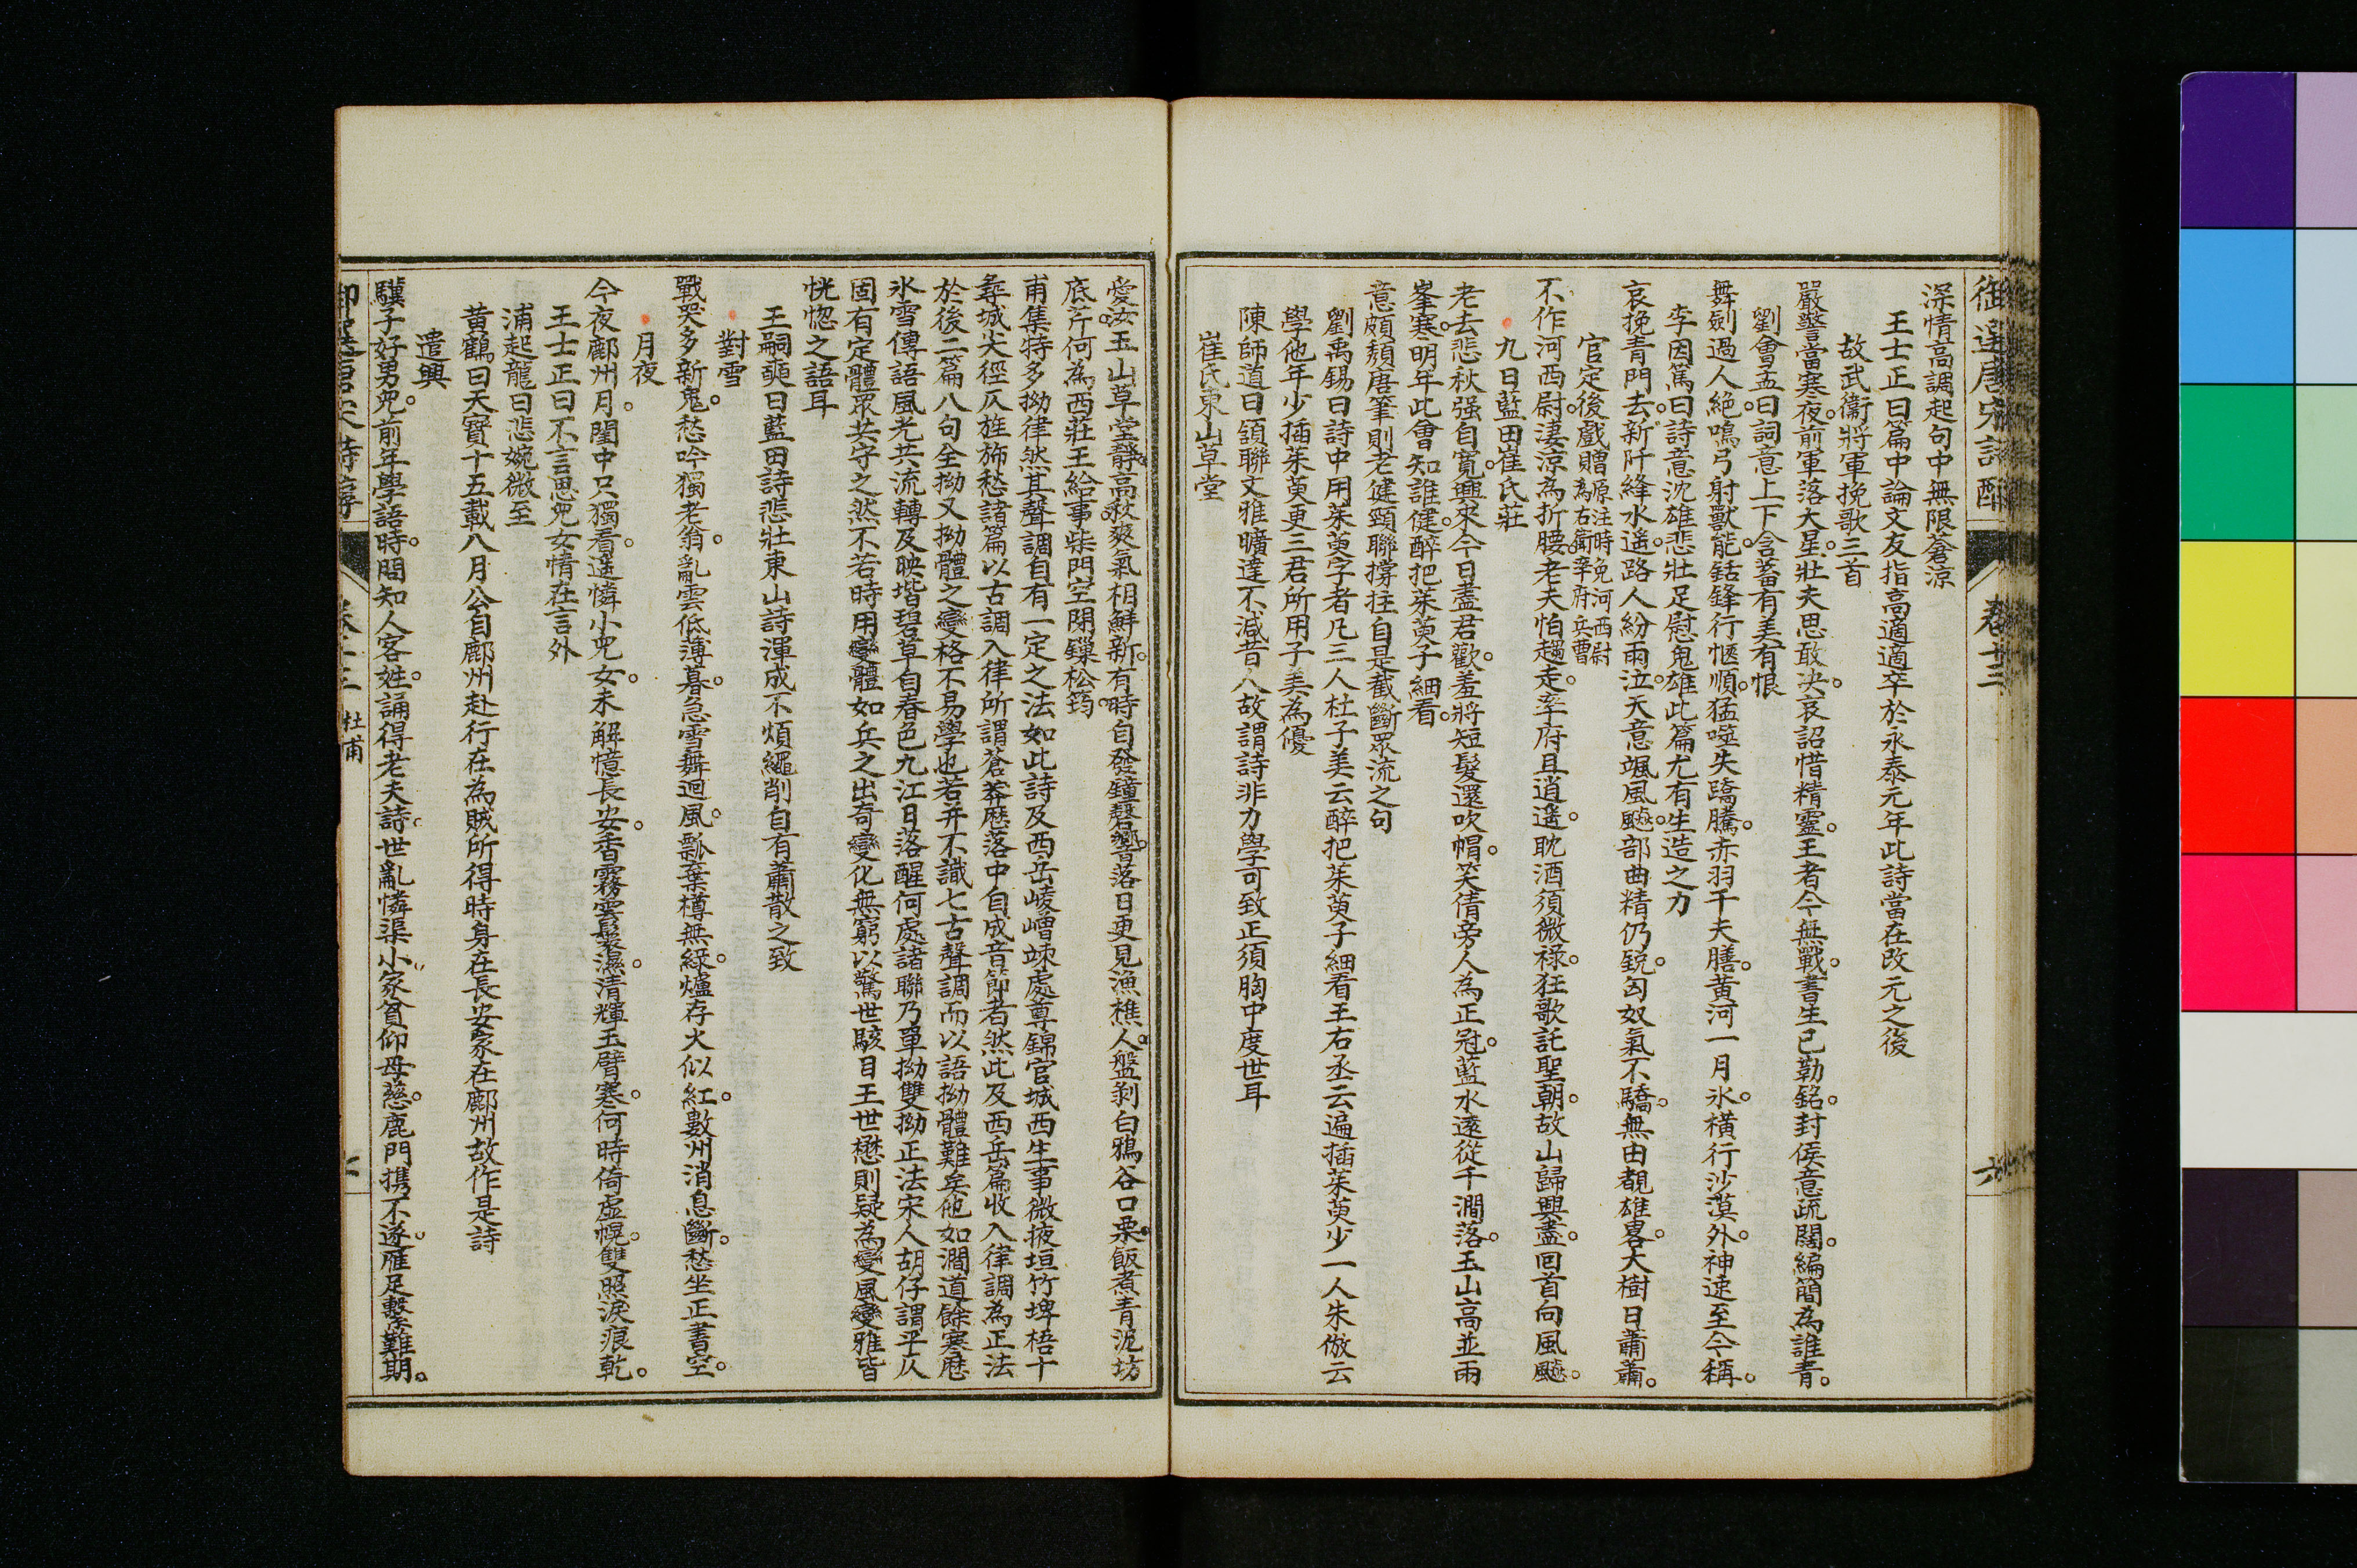 御選唐宋詩醇 卷十三 六
深情高調起句中無限蒼涼
王士正曰篇中論文友指高適適卒於永泰元年此詩當在改元之後
故武衞將軍挽歌三首
嚴警當寒夜前軍落大星壯夫思敢決哀詔惜精靈王者今無戰書生已勒銘封侯意疏闊編簡為誰青
劉會孟曰詞意上下含蓄有美有恨
舞劍過人絕鳴弓射獸能銛鋒行愜順猛噬失蹻騰赤羽千夫膳黃河一月氷橫行沙漠外神速至今稱
李因篤曰詩意沈雄悲壯足慰鬼雄此篇尤有生造之力
哀挽青門去新阡絳水遙路人紛雨泣天意颯風飈部曲精仍銳匈奴氣不驕無由覩雄畧大樹日蕭蕭
官定後戲贈原注時免河西尉為右衞率府兵曹
不作河西尉淒涼為折腰老夫怕趨走率府且逍遙耽酒須微祿狂歌託聖朝故山歸興盡回首向風飈
九日藍田崔氏莊
老去悲秋强自寬興來今日盡君歡羞將短髮還吹帽笑倩旁人為正冠藍水遠從千澗落玉山高並兩
峯寒明年此會知誰健醉把茱萸子細看
意頗頹唐筆則老健頸聯撐拄自是截斷眾流之句
劉禹錫曰詩中用茱萸字者凡三人杜子美云醉把茱萸子細看王右丞云遍插茱萸少一人朱倣云
學他年少插茱萸更三君所用子美為優
陳師道曰頷聯文雅曠達不減昔人故謂詩非力學可致正須胸中度世耳
崔氏東山草堂
愛汝玉山草堂靜高秋爽氣相鮮新有時自發鐘磬響落日更見漁樵人盤剝白鴉谷口栗飯煮青泥坊
底芹何為西莊王給事柴門空閉鏁松筠
甫集特多拗律然其聲調自有一定之法如此詩及西岳崚嶒竦處尊錦官城西生事微掖垣竹埤梧十
尋城尖徑仄旌旆愁諸篇以古調入律所謂蒼莽歷落中自成音節者然此及西岳篇收入律調為正法
於後二篇八句全拗又拗體之變格不易學也若并不識七古聲調而以語拗體難矣他如澗道餘寒歷
氷雪傳語風光共流轉及映堦碧草自春色九江日落醒何處諸聯乃單拗雙拗正法宋人胡仔謂平仄
固有定體眾共守之然不若時用變體如兵之出奇變化無窮以驚世駭目王世懋則疑為變風變雅皆
恍惚之語耳
王嗣奭曰藍田詩悲壯東山詩渾成不煩繩削自有蕭散之致
對雪
戰哭多新鬼愁吟獨老翁亂雲低薄暮急雪舞迴風瓢棄樽無綠爐存火似紅數州消息斷愁坐正書空
月夜
今夜鄜州月閨中只獨看遙憐小兒女未解憶長安香霧雲鬟濕清輝玉臂寒何時倚虛幌雙照淚痕乾
王士正曰不言思兒女情在言外
浦起龍曰悲婉微至
黃鶴曰天寶十五載八月公自鄜州赴行在為賊所得時身在長安家在鄜州故作是詩
遣興
驥子好男兒前年學語時問知人客姓誦得老夫詩世亂憐渠小家貧仰母慈鹿門攜不遂雁足繫難期
杜甫